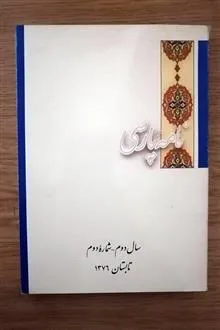 نامه پارسی
سال دوم - شمارهٔ دوم
تابستان ۱۳۷۶